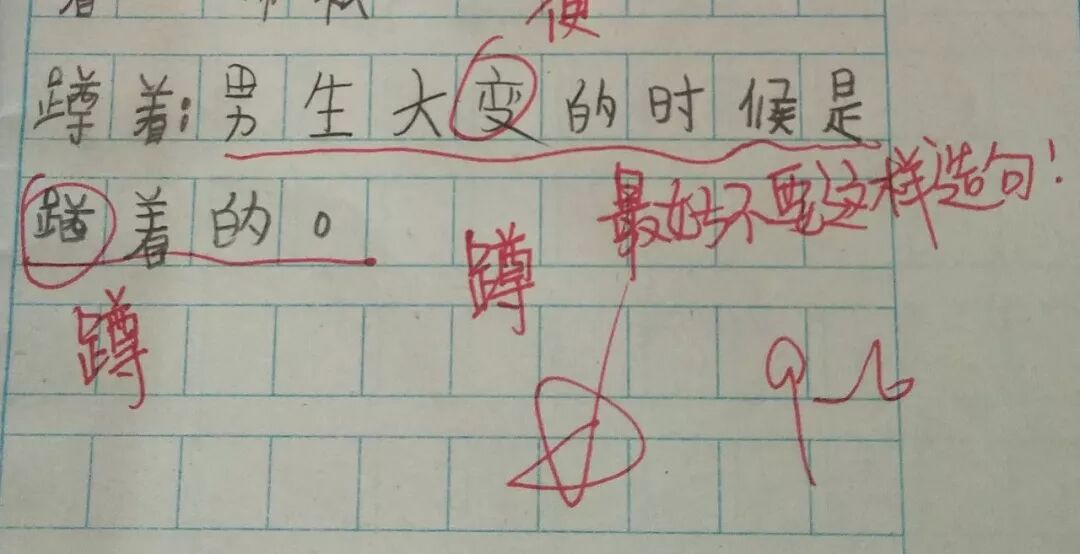 便
蹲着：男生大变的时候是
最好不要这样造句！
着的。
蹲
蹲